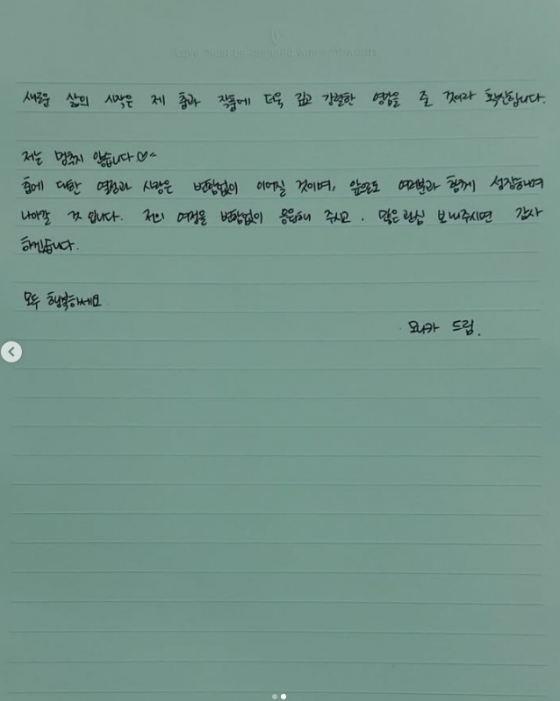 새로운 삶의 시작은 제 춤과 작품에 더욱 깊고 강렬한 영감을 줄 것이라 확신합니다.
저는 멈추지 않습니다♡^
춤에 대한 열정과 사랑은 변함없이 이어질 것이며, 앞으로도 여러분과 함께 성장하며
나아갈 것 입니다. 저의 여정을 변함없이 응원해 주시고, 많은 관심 보내주시면 감사
하겠습니다.
모두 행복하세요.
모니카 드림.